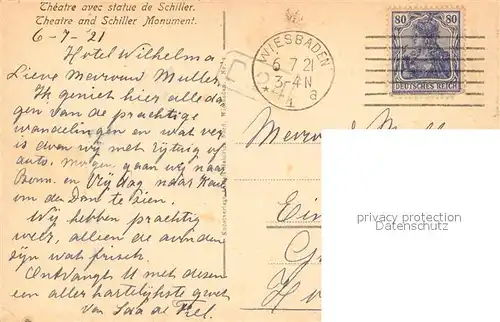 Théatre avec statue de Schiller.
Theatre and Schiller Monument.
6-7-'21
Hotel Wilhelma
Lieve Mevrouw Muller
Ik geniet hier alle da
gen van de prachtige
wandelingen en wat ver
is doen wij met rijtuig of
auto. Morgen gaan wij naar
Bonn. en Vrijdag naar
om den Dom te zien.
Wij hebben prachtig
weer, alleen de avonden
zijn wat frisch.
Ontvangt U met dezen
een aller hartelijkste groet
van
WIESBADEN
6.7.21
3-4N
a
80 80
DEUTSCHES REICH
Mevrouw
privacy protection
Datenschutz